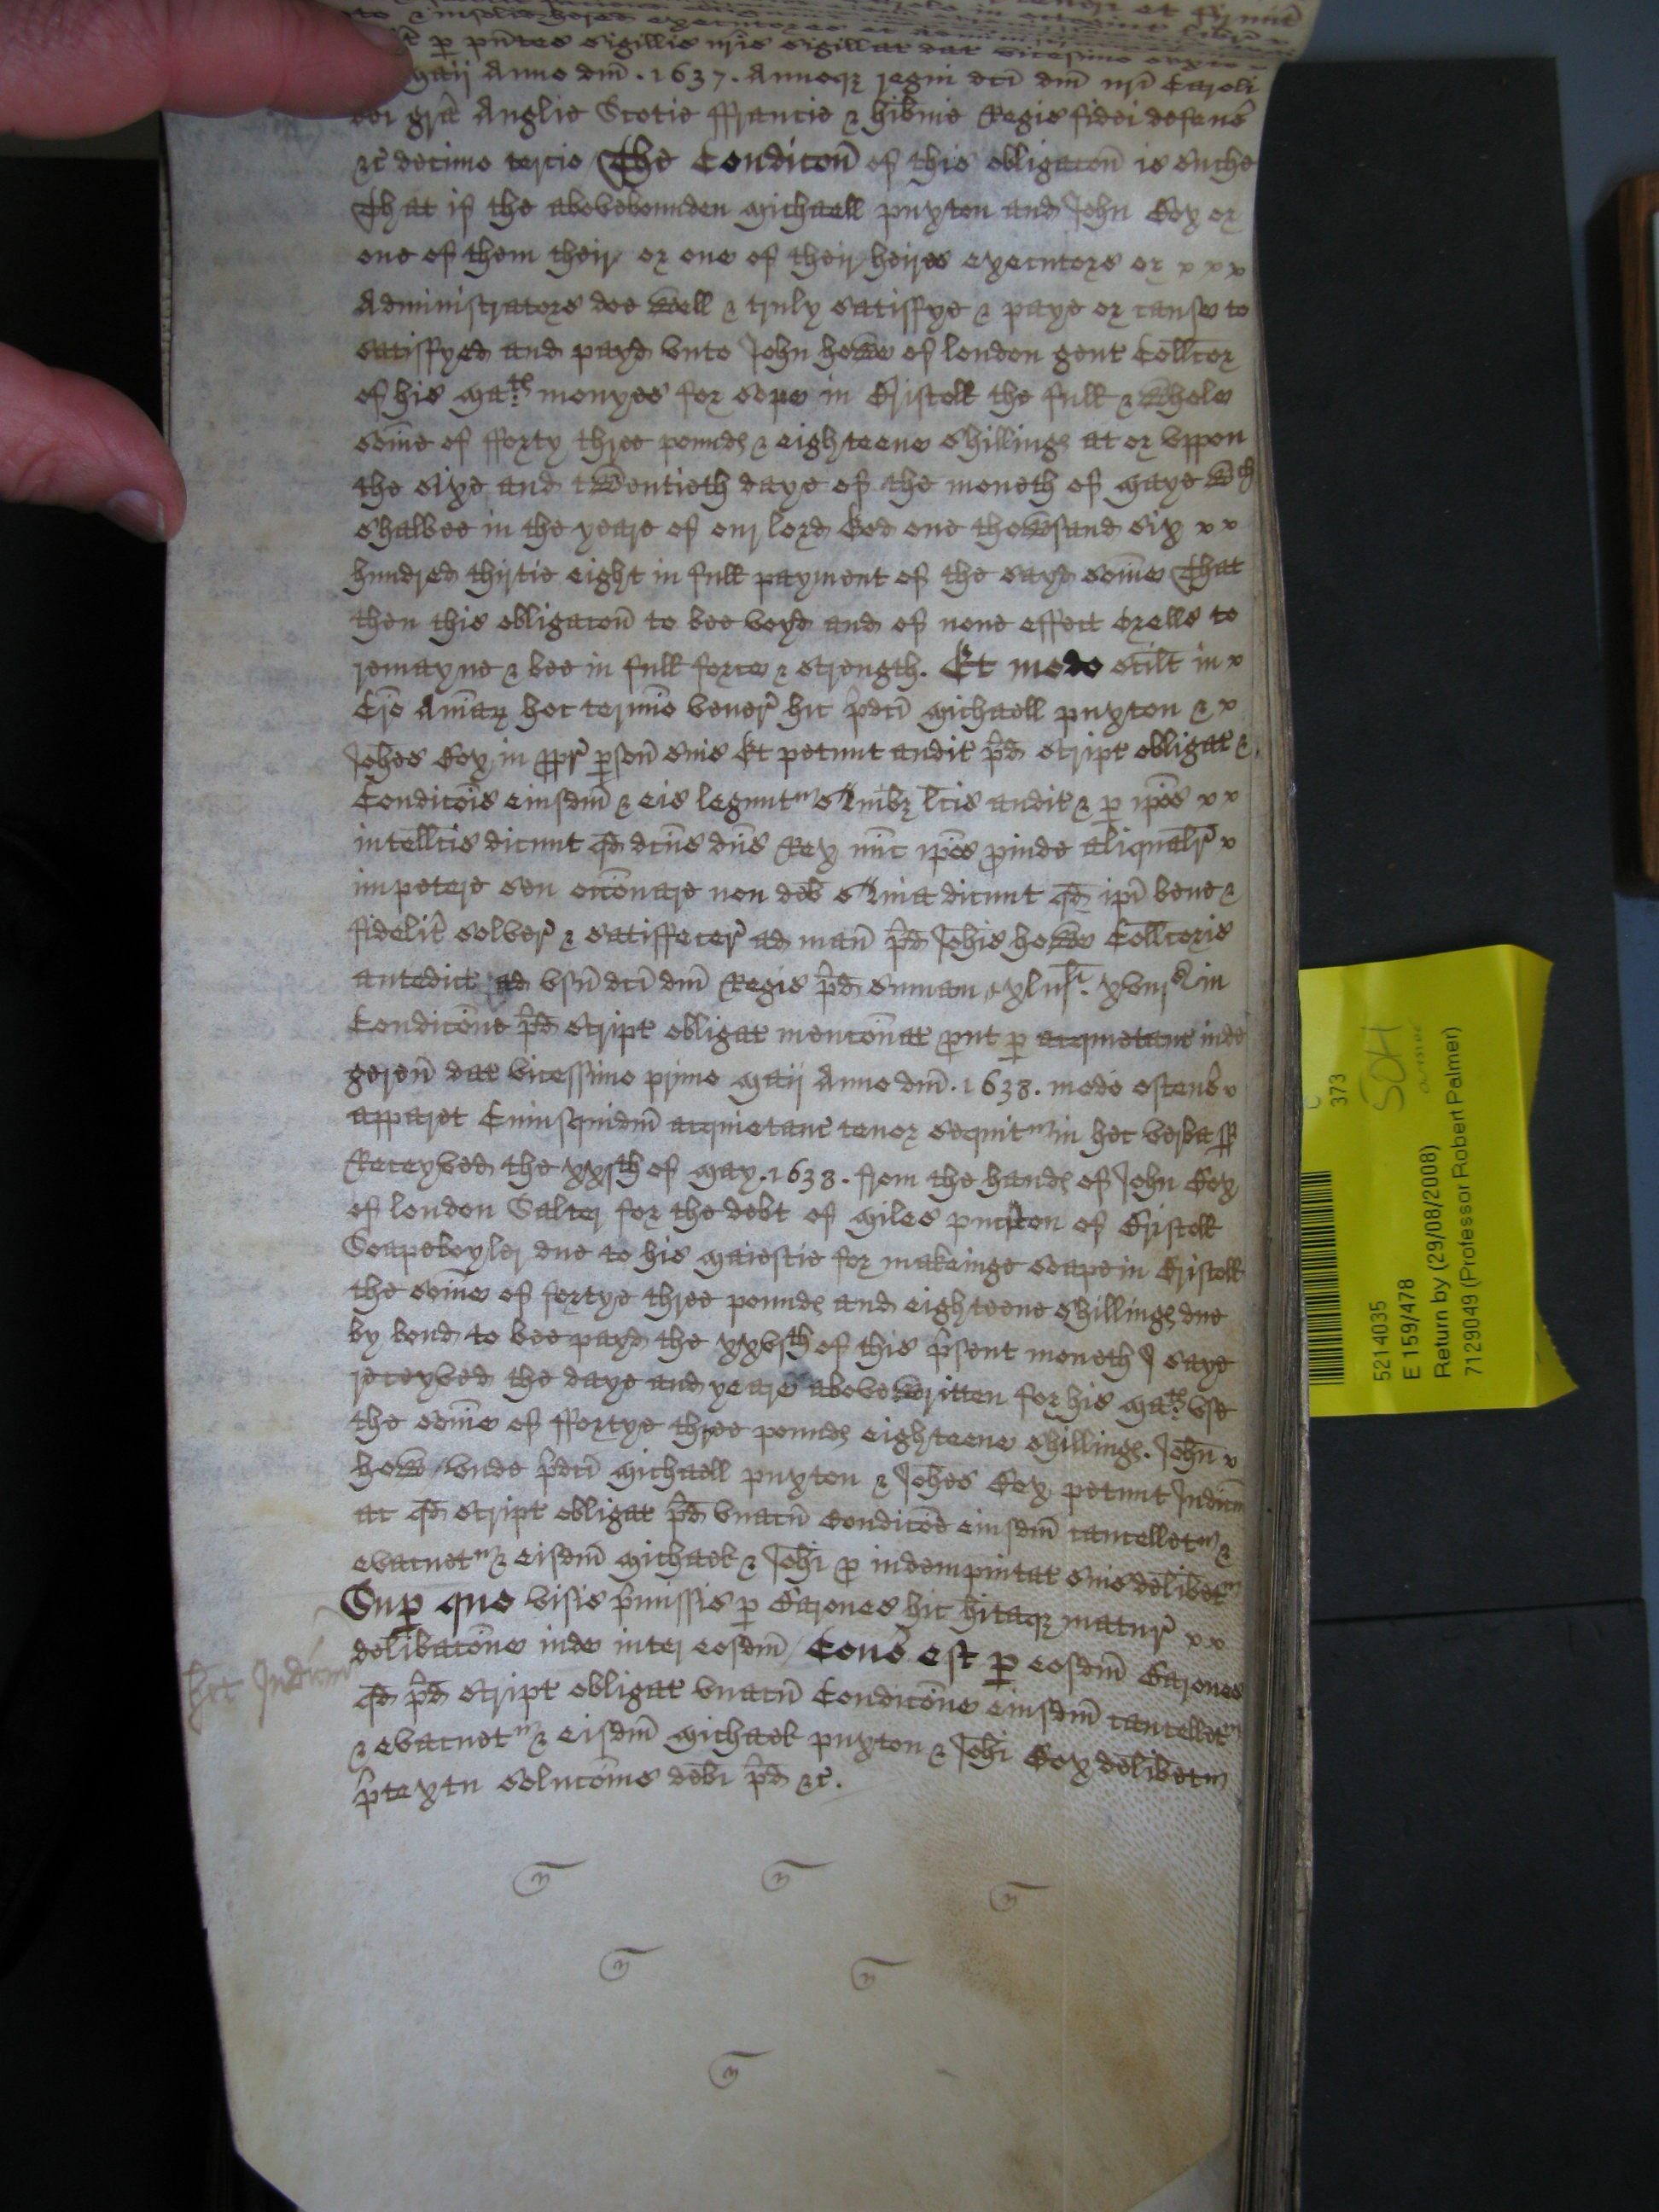 p pñtes sigillis nr̃is sigillat dat vicesimo sexto
Maij Anno dm̃ . 1637 . Annoqȝ regni dc̃i dm̃ nr̃i Caroli
dei gr̃a Anglie Scotie ffrancie & hib̃nie Regis fidei defens̃
&c̃ decimo tercio The Condic̃on of this obligac̃on is suche
That if the abovebounden Michaell puxton and John Cox or
one of them their or one of their heires executors or x x x
Administrators doe well & truly satisfye & paye or cause to
satisfyed and payd vnto John howe of london gent Coll̃cor
of his Ma.tes monyes for sope in Bristoll the full & whole
som̃e of fforty three pounds & eighteene shillings at or vppon
the sixe and twentieth daye of the moneth of Maye wch
shalbee in the yeare of our lord God one thowsand six x x
hundred thirtie eight in full payment of the sayd som̃e That
then this obligac̃on to bee voyd and of none effect orells to
remayne & bee in full force & strength. Et modo scil̃t in x
Cr̃o Aĩarȝ hoc termĩo vener̃ hic p̃dc̃i Michaell puxton & x
Joh̃es Cox in ppr̃ p̱son̄ suis Et petunt audit̃ p̃d script obligat &
Condic̃ois eiusdm̃ & eis leguntur Quibȝ l̃cis audit̃ & p ip̃os x x
intell̃cis dicunt qd dc̃us dñs Rex nũc ip̃os p̱inde aliqualr̃ x
impetere seu occ̃onare non deb̃ Quia dicunt qd ip̃i bene &
fidelit̃ solver̃ & satisfecer̃ ad man̄ p̃d Joh̃is howe Coll̃coris
antedict ad vsũ dc̃i dm̃ Regis p̃d sumam xliijli. xviijs in
Condic̃one p̃d script obligat menc̃onat p̱ut p acquietanc̃ inde
geren̄ dat vicessimo primo Maij Anno dm̃ . 1638 . modo ostens̃ x
apparet Cuiusquidm̃ acquietanc̃ tenor sequitur in hec verba ss
Receyved the xxjth of May . 1638 . from the hands of John Cox
of london Salter for the debt of Miles puxton of Bristoll
Soapeboyler due to his Maiestie for makeinge soape in Bristoll
the som̃e of fortye three pounds and eighteene shillings due
by bond to bee payd the xxvjth of this p̃sent moneth I saye
receyved the daye and yeare abovewritten for his Ma.tes vse
the som̃e of ffortye three pounds eighteene shillings. John x
howe / vnde p̃dc̃i Michaell puxton & Joh̃es Cox petunt Judiciũ
ac qd script obligat p̃d vnacũ Condic̃oe eiusdm̃ cancelletur &
evacuetur & eisdm̃ Michaeli & Joh̃i p̱ indempnitat suis delib̃etur
Sup quo visis p̃missis p Barones hic h̃itaqȝ matur̃ x x
delib̃ac̃one inde inter eosdm̃ / Cons̃ est p eosdm̃ Barones
qd p̃d script obligat vnacũ Condic̃one eiusdm̃ cancelletur
& evacuetur & eisdm̃ Michaeli puxton & Joh̃i Cox delib̃etur
p̃textu soluc̃onis deb̃i p̃d &c̃ .
hoc Judiciũ
373
SOH
5214035
E 159/478
Return by (29/08/2008)
7129049 (Professor Robert Palmer)